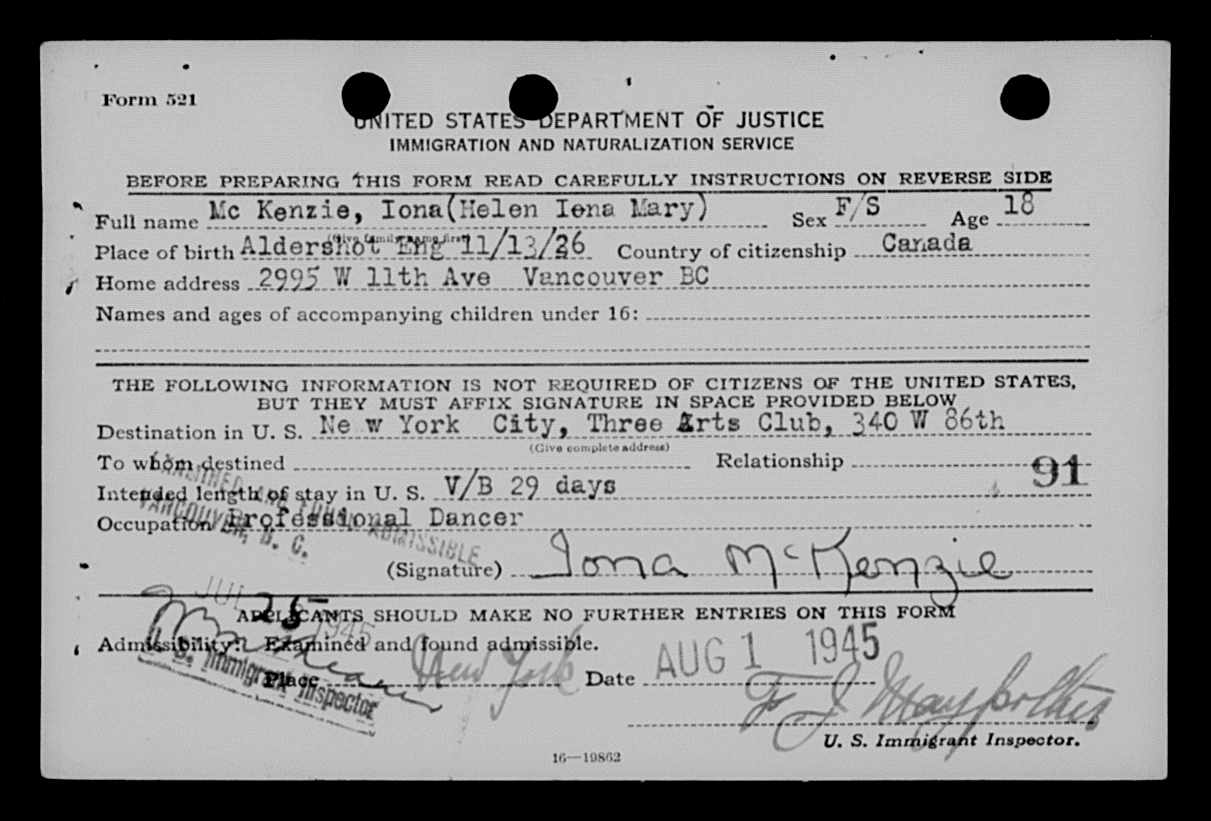 Form 521
UNITED STATES DEPARTMENT OF JUSTICE
IMMIGRATION AND NATURALIZATION SERVICE
BEFORE PREPARING THIS FORM READ CAREFULLY INSTRUCTIONS ON REVERSE SIDE
Full name Mc Kenzie, Iona(Helen Iona Mary) Sex F/S Age 18
(Give family name first)
Place of birth Aldershot Eng 11/13/26 Country of citizenship Canada
Home address 2995 W 11th Ave Vancouver BC
Names and ages of accompanying children under 16:
THE FOLLOWING INFORMATION IS NOT REQUIRED OF CITIZENS OF THE UNITED STATES,
BUT THEY MUST AFFIX SIGNATURE IN SPACE PROVIDED BELOW
Destination in U. S. Ne w York City, Three Arts Club, 340 W 86th
(Give complete address)
To whom destined Relationship
91
Intended length of stay in U. S. V/B 29 days
Occupation Professional Dancer
EXAMINED AND FOUND ADMISSIBLE
VANCOUVER, B. C.
(Signature) Iona McKenzie
JUL 25 1945
APPLICANTS SHOULD MAKE NO FURTHER ENTRIES ON THIS FORM
Admissibility: Examined and found admissible.
U. S. Immigrant Inspector
Place New York Date AUG 1 1945
U. S. Immigrant Inspector.
16—19862